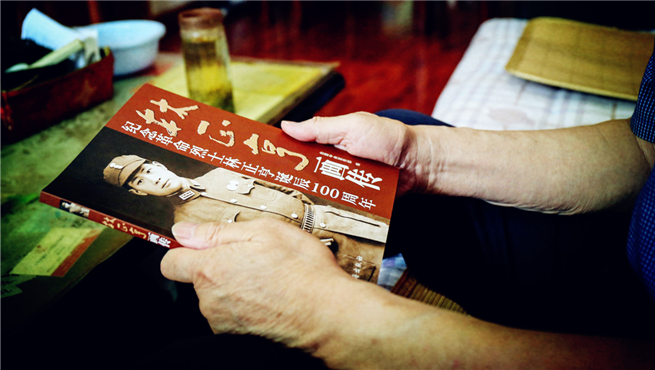 林正亨画传
纪念革命烈士林正亨诞辰100周年
林正亨画传